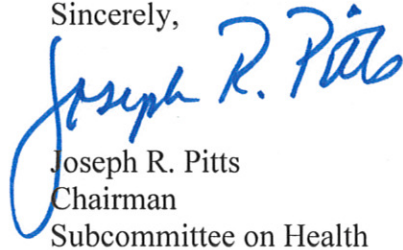 Sincerely,
Joseph R. Pitts
Joseph R. Pitts
Chairman
Subcommittee on Health